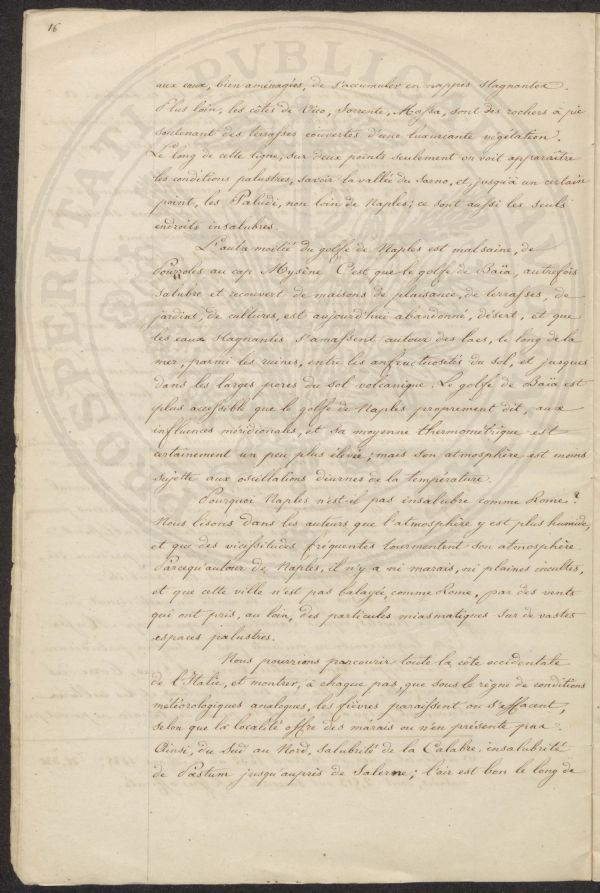 16
aux eaux, bien aménagées, de s'accumuler en nappes stagnantes.
Plus loin, les côtes de Vico, Sorrente, Massa, sont des rochers à pic
soutenant des terrasses couvertes d'une luxuriante végétation.
Le long de cette ligne, sur deux points seulement on voit apparaître
les conditions palustres, savoir la vallée du Sarno, et, jusqu'à un certain
point, les Paludi, non loin de Naples; ce sont aussi les seuls
endroits insalubres.
L'autre moitié du golfe de Naples est malsaine, de
Pouzzoles au cap Mysène. C'est que le golfe de Baïa, autrefois
salubre et recouvert de maisons de plaisance, de terrasses, de
jardins, de cultures, est aujourd'hui abandonné, désert, et que
les eaux stagnantes s'amassent autour des lacs, le long de la
mer, parmi les ruines, entre les anfractuosités du sol, et jusques
dans les larges pores du sol volcanique. Le golfe de Baïa est
plus accessible que le golfe de Naples proprement dit, aux
influences méridionales, et sa moyenne thermométrique est
certainement un peu plus élevée; mais son atmosphère est moins
sujette aux oscillations diurnes de la température.
Pourquoi Naples n'est-il pas insalubre comme Rome?
Nous lisons dans les auteurs que l'atmosphère y est plus humide,
et que des vicissitudes fréquentes tourmentent son atmosphère.
Parcequ'autour de Naples, il n'y a ni marais, ni plaines incultes,
et que cette ville n'est pas balayée, comme Rome, par des vents
qui ont pris, au loin, des particules miasmatiques sur de vastes
espaces palustres.
Nous pourrions parcourir toute la côte occidentale
de l'Italie, et montrer, à chaque pas, que sous le règne de conditions
météorologiques analogues, les fièvres paraissent ou s'effacent,
selon que la localité offre des marais ou n'en présente pas.
Ainsi, du Sud au Nord, salubrité de la Calabre, insalubrité
de Pæstum jusqu'auprès de Salerne; l'air est bon le long de
PUBLIC
PROSPERITATI